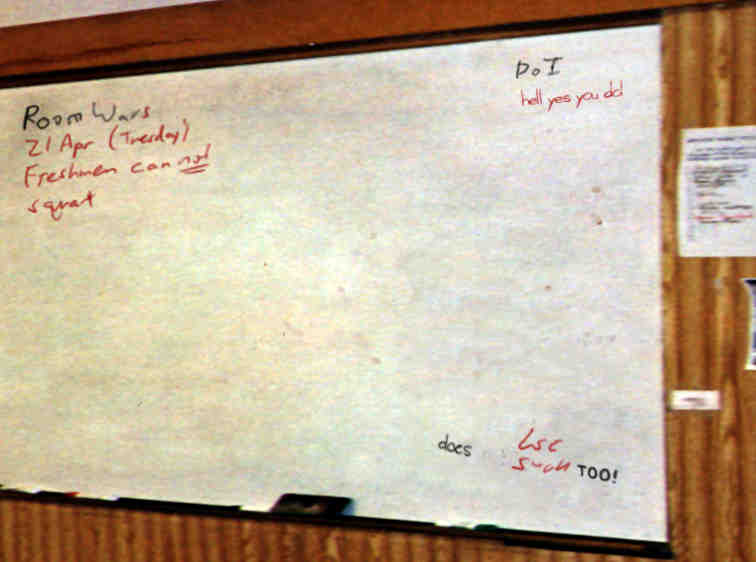 Room Wars
21 Apr (Tuesday)
Freshmen can not
squat
DoI
hell yes you do!
does Lsc
such TOO!